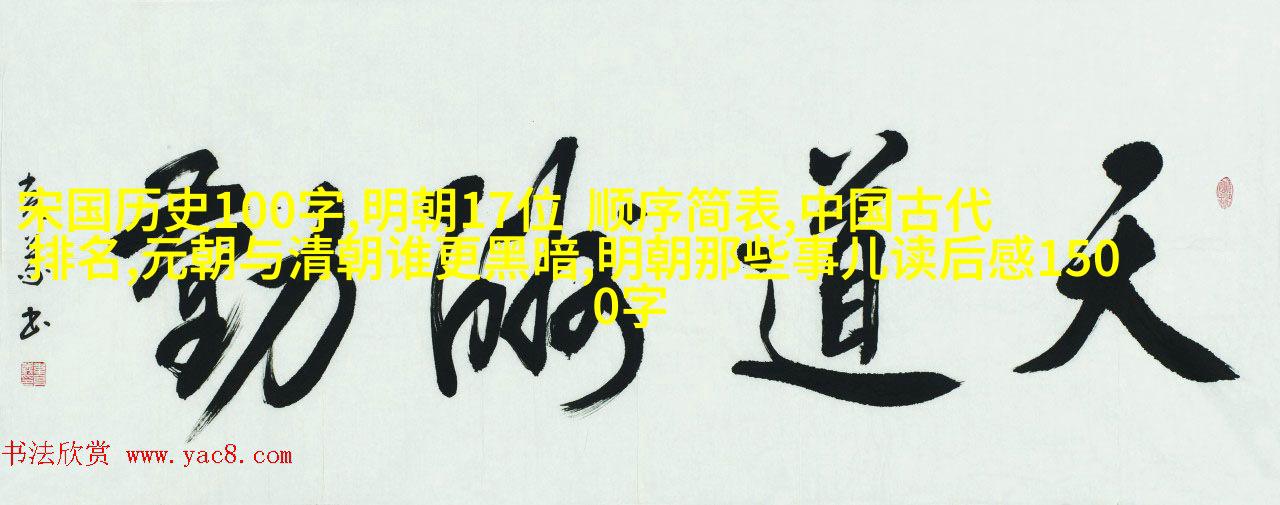 天道酬勤
宋国历史100字,明朝17位 顺序简表,中国古代
排名,元朝与清朝谁更黑暗,明朝那些事儿读后感150
0字
书法欣赏 www.yac8.com